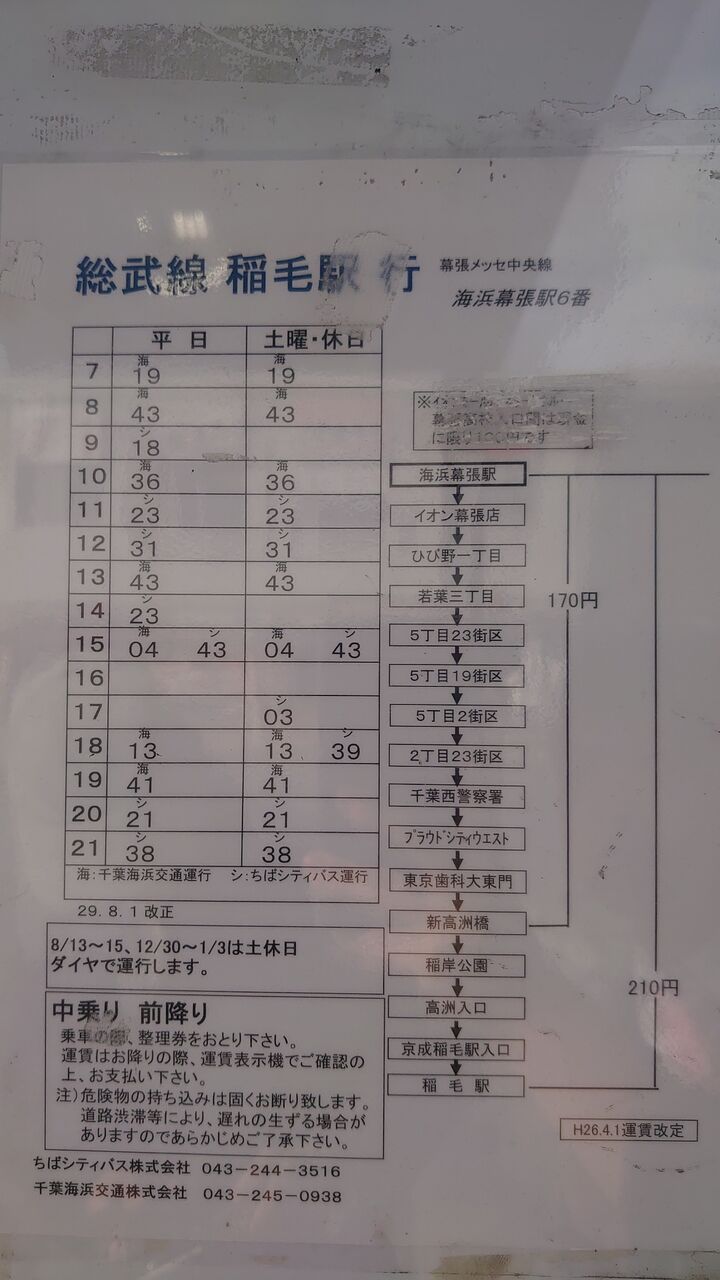 総武線 稲毛駅 行
幕張メッセ中央線
海浜幕張駅6番
平 日 土曜・休日
7 海19 海19
8 海43 海43
9 シ18
10 海36 海36
11 シ23 シ23
12 シ31 シ31
13 海43 海43
14 シ23
15 海04 シ43 海04 シ43
16
17 シ03
18 海13 海13 シ39
19 海41 海41
20 シ21 シ21
21 シ38 シ38
海:千葉海浜交通運行 シ:ちばシティバス運行
29. 8. 1 改正
8/13～15、12/30～1/3は土休日
ダイヤで運行します。
中乗り 前降り
乗車の際、整理券をおとり下さい。
運賃はお降りの際、運賃表示機でご確認の
上、お支払い下さい。
注）危険物の持ち込みは固くお断り致します。
道路渋滞等により、遅れの生ずる場合が
ありますのであらかじめご了承下さい。
ちばシティバス株式会社 043－244－3516
千葉海浜交通株式会社 043－245－0938
※イオンモール
入口間は現金
に限り100円です
海浜幕張駅
イオン幕張店
ひび野一丁目
若葉三丁目
170円
5丁目23街区
5丁目19街区
5丁目2街区
2丁目23街区
千葉西警察署
プラウドシティウエスト
東京歯科大東門
新高洲橋
稲岸公園
210円
高洲入口
京成稲毛駅入口
稲 毛 駅
H26.4.1運賃改定